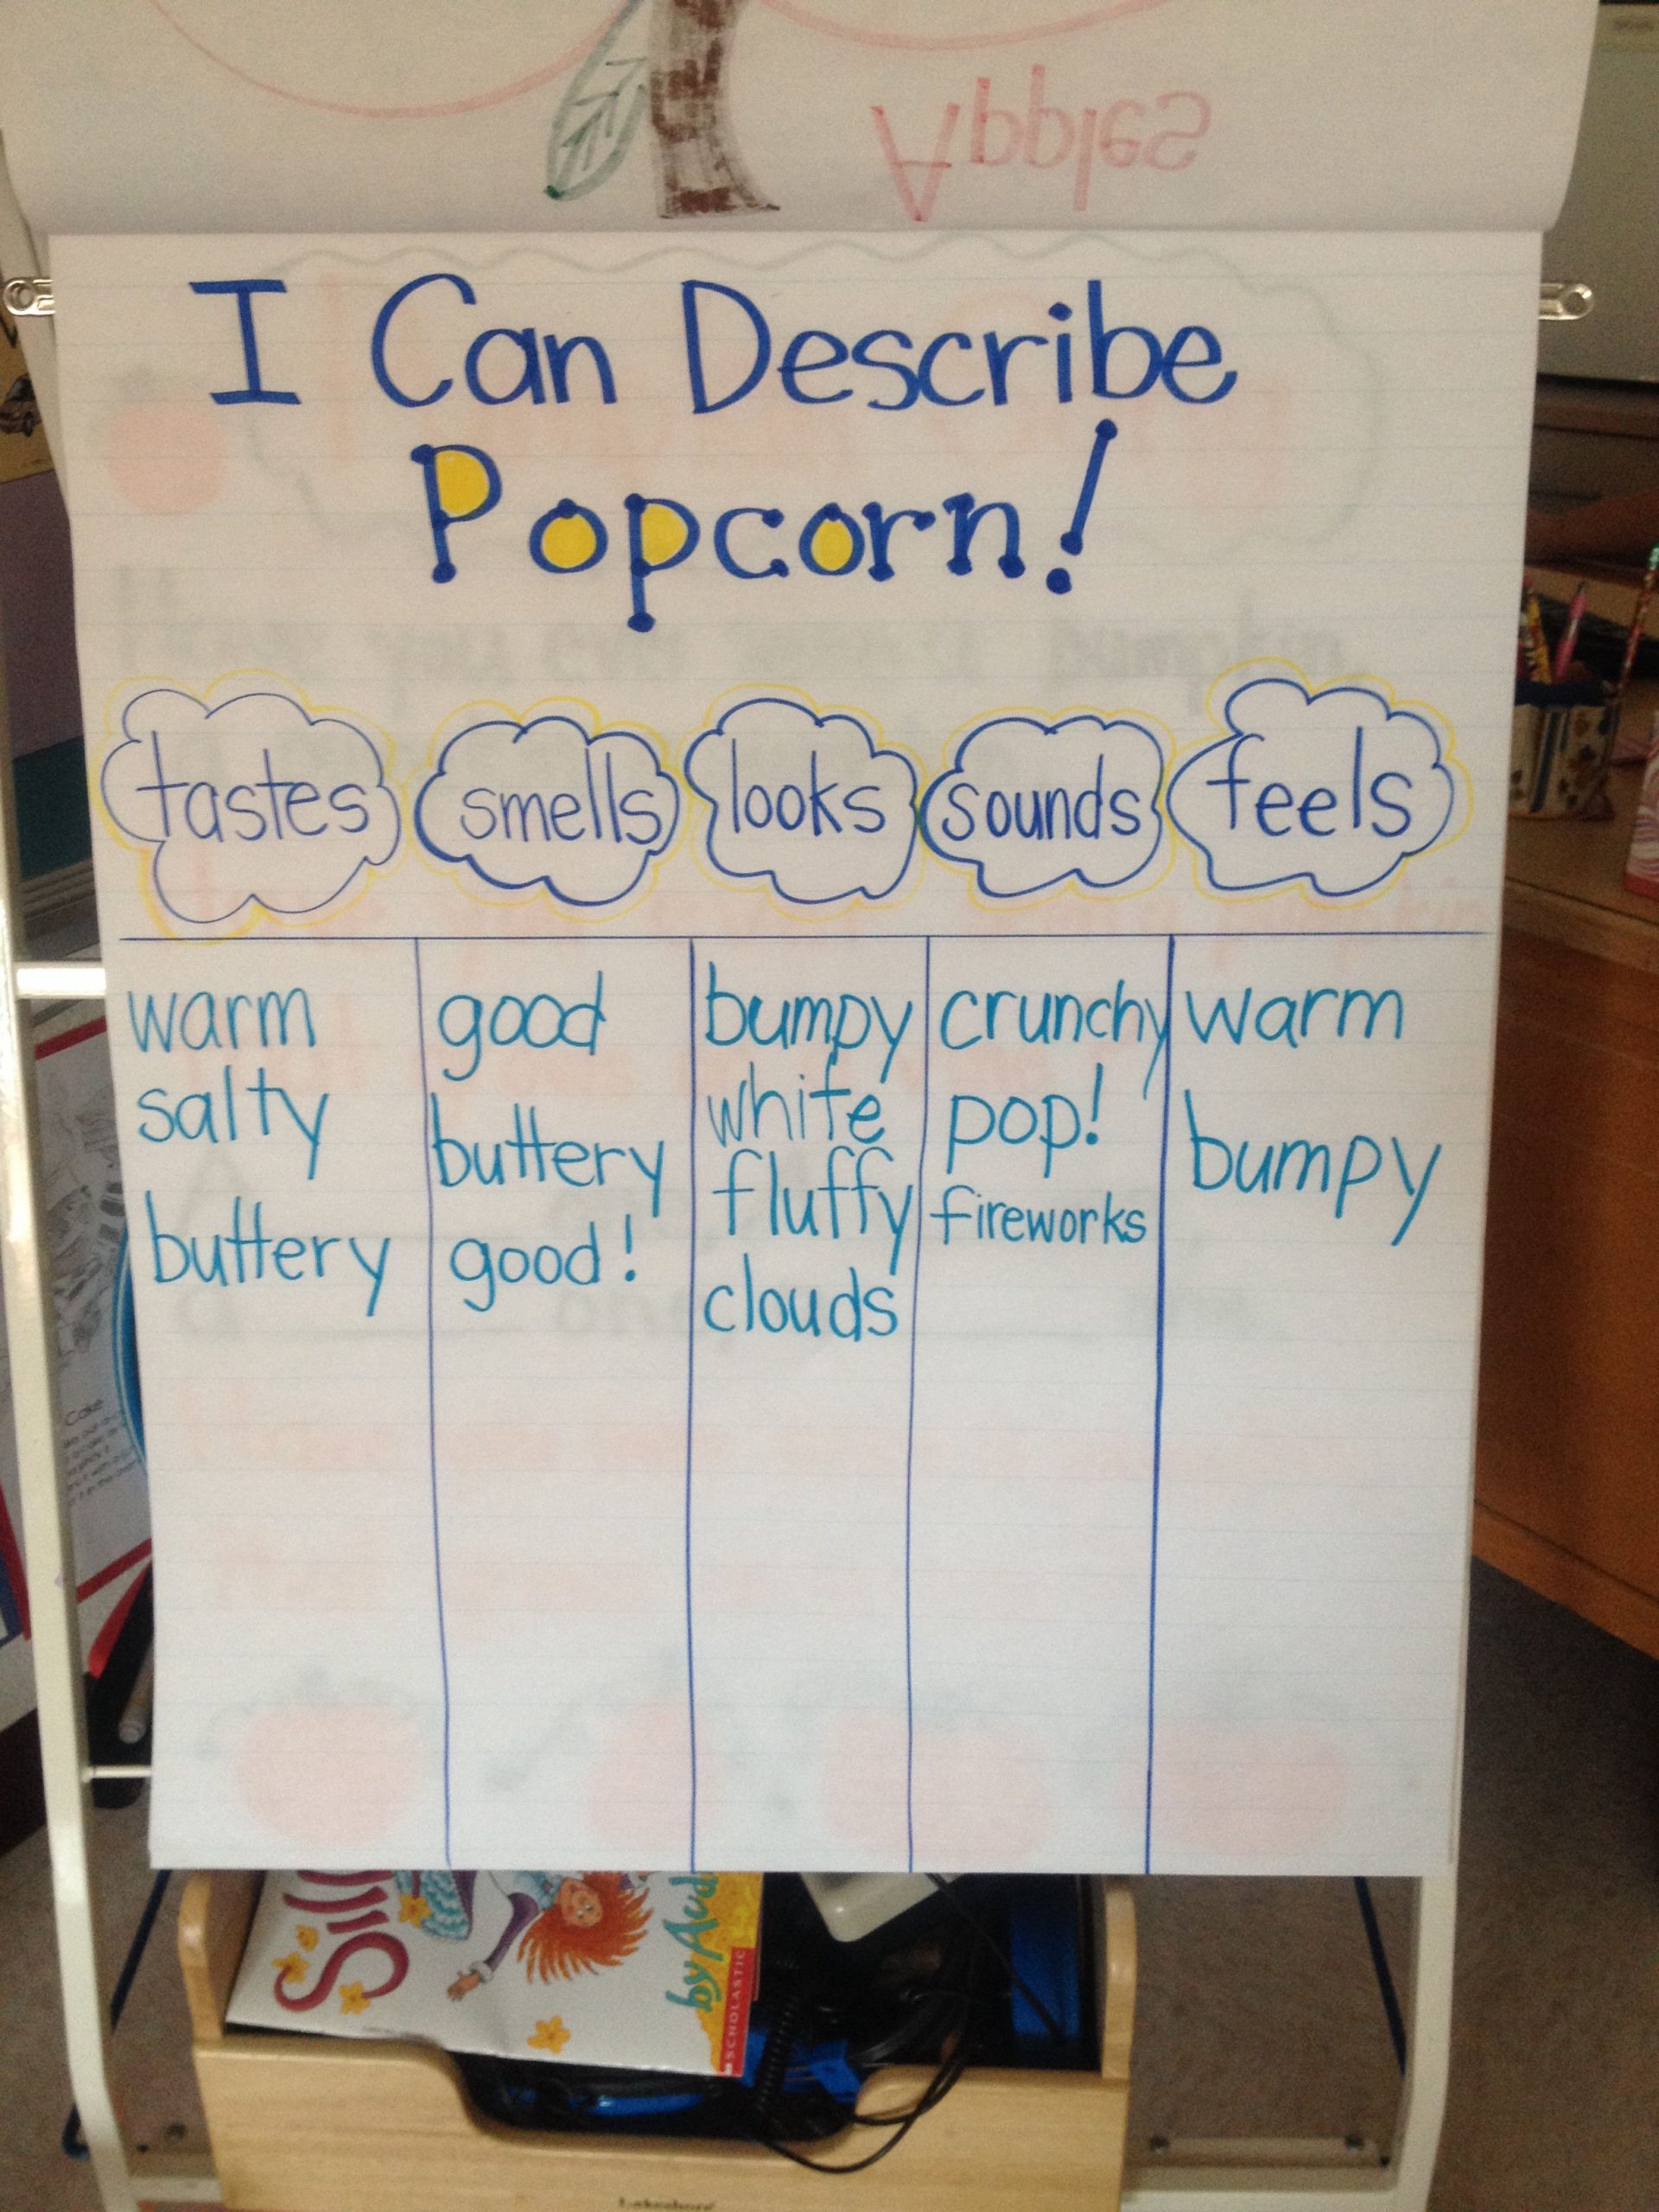 Apples
I Can Describe
Popcorn!
tastes smells looks sounds feels
warm good bumpy crunchy warm
salty buttery white pop! bumpy
buttery good! fluffy fireworks
clouds
Cake
by Aud
SCHOLASTIC
Lakeshore